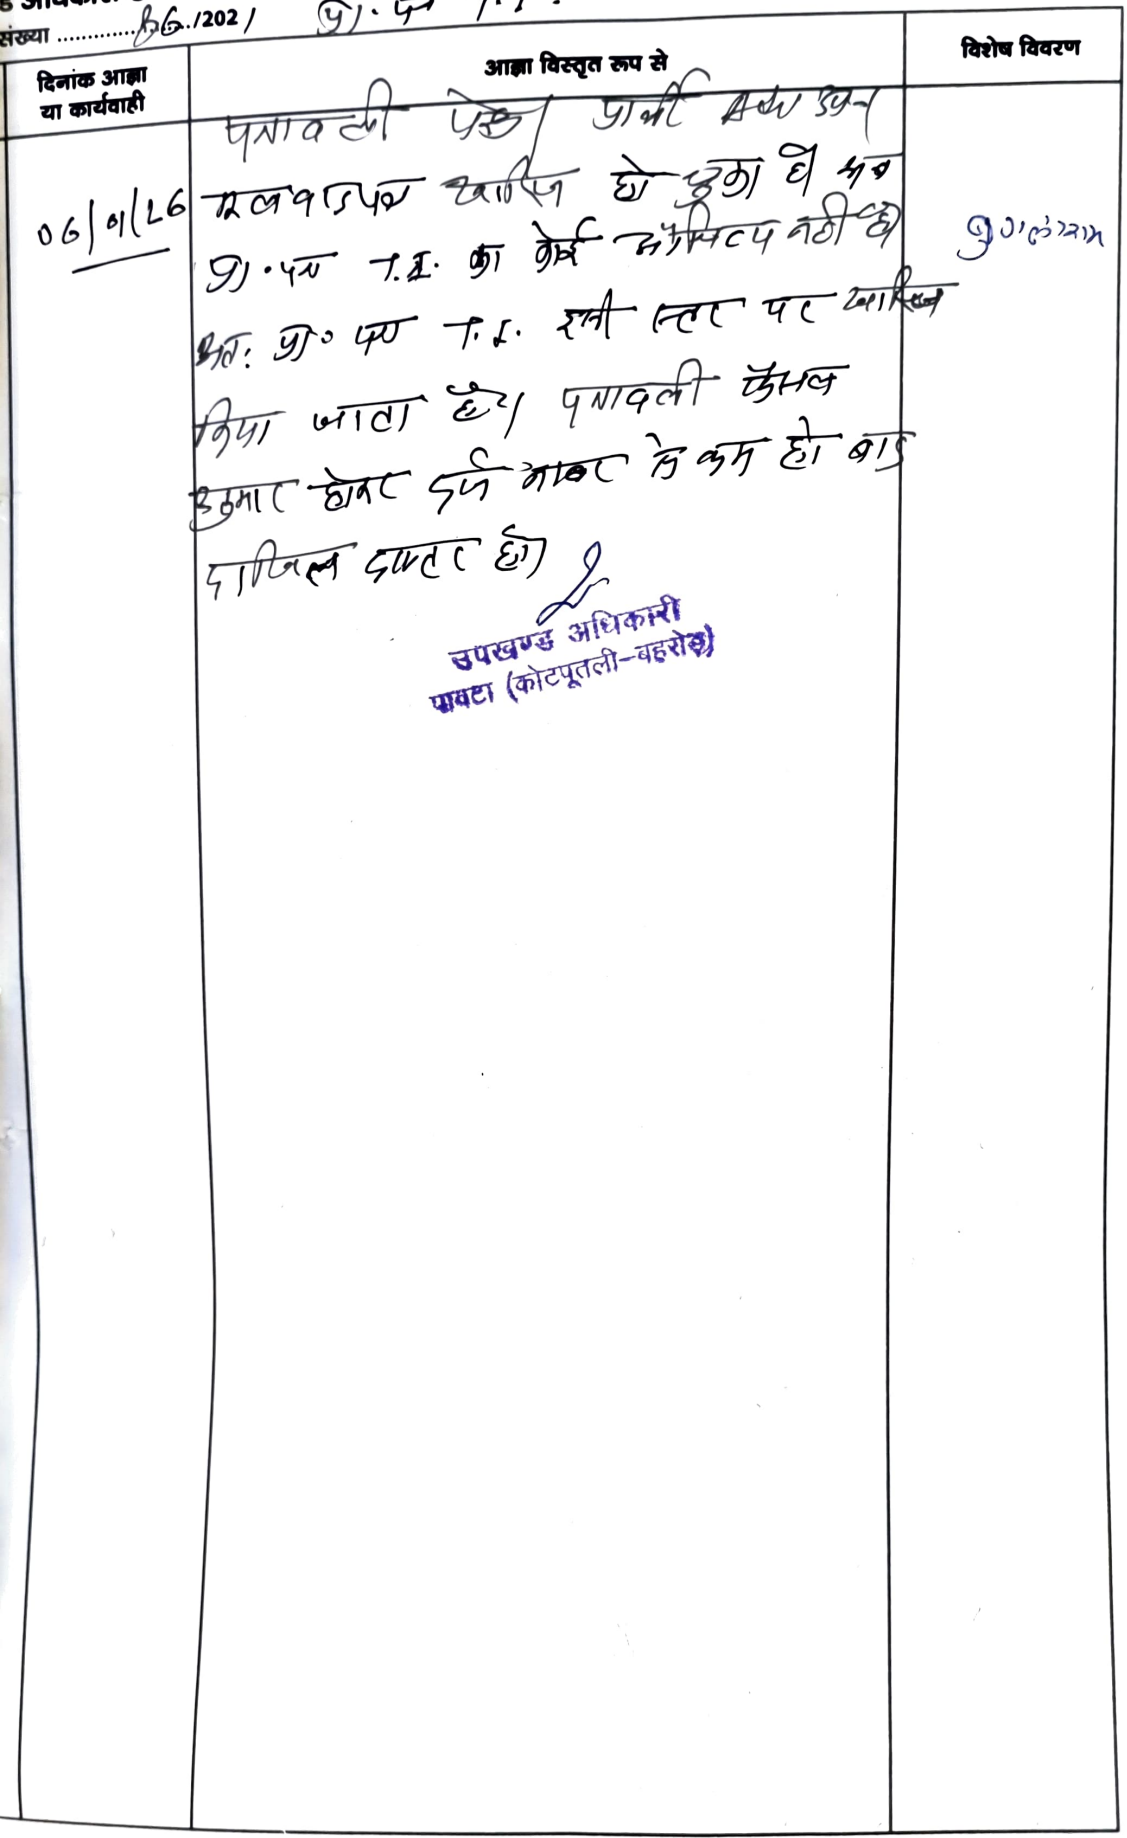 संख्या ............86./2021 प्रा. पत्र
दिनांक आज्ञा
या कार्यवाही
आज्ञा विस्तृत रूप से
विशेष विवरण
पत्रावली पेश। प्रार्थी
06/01/26
मूलवाद पत्र खारिज हो चुका है अब
प्रा. पत्र T.I. का कोई औचित्य नहीं है।
अतः प्रा० पत्र T.I. इसी स्तर पर खारिज
किया जाता है। पत्रावली फैसल
शुमार होकर दर्ज नम्बर से कम हो बाद
दाखिल दफ्तर हो।
उपखण्ड अधिकारी
पावटा (कोटपूतली-बहरोड़)